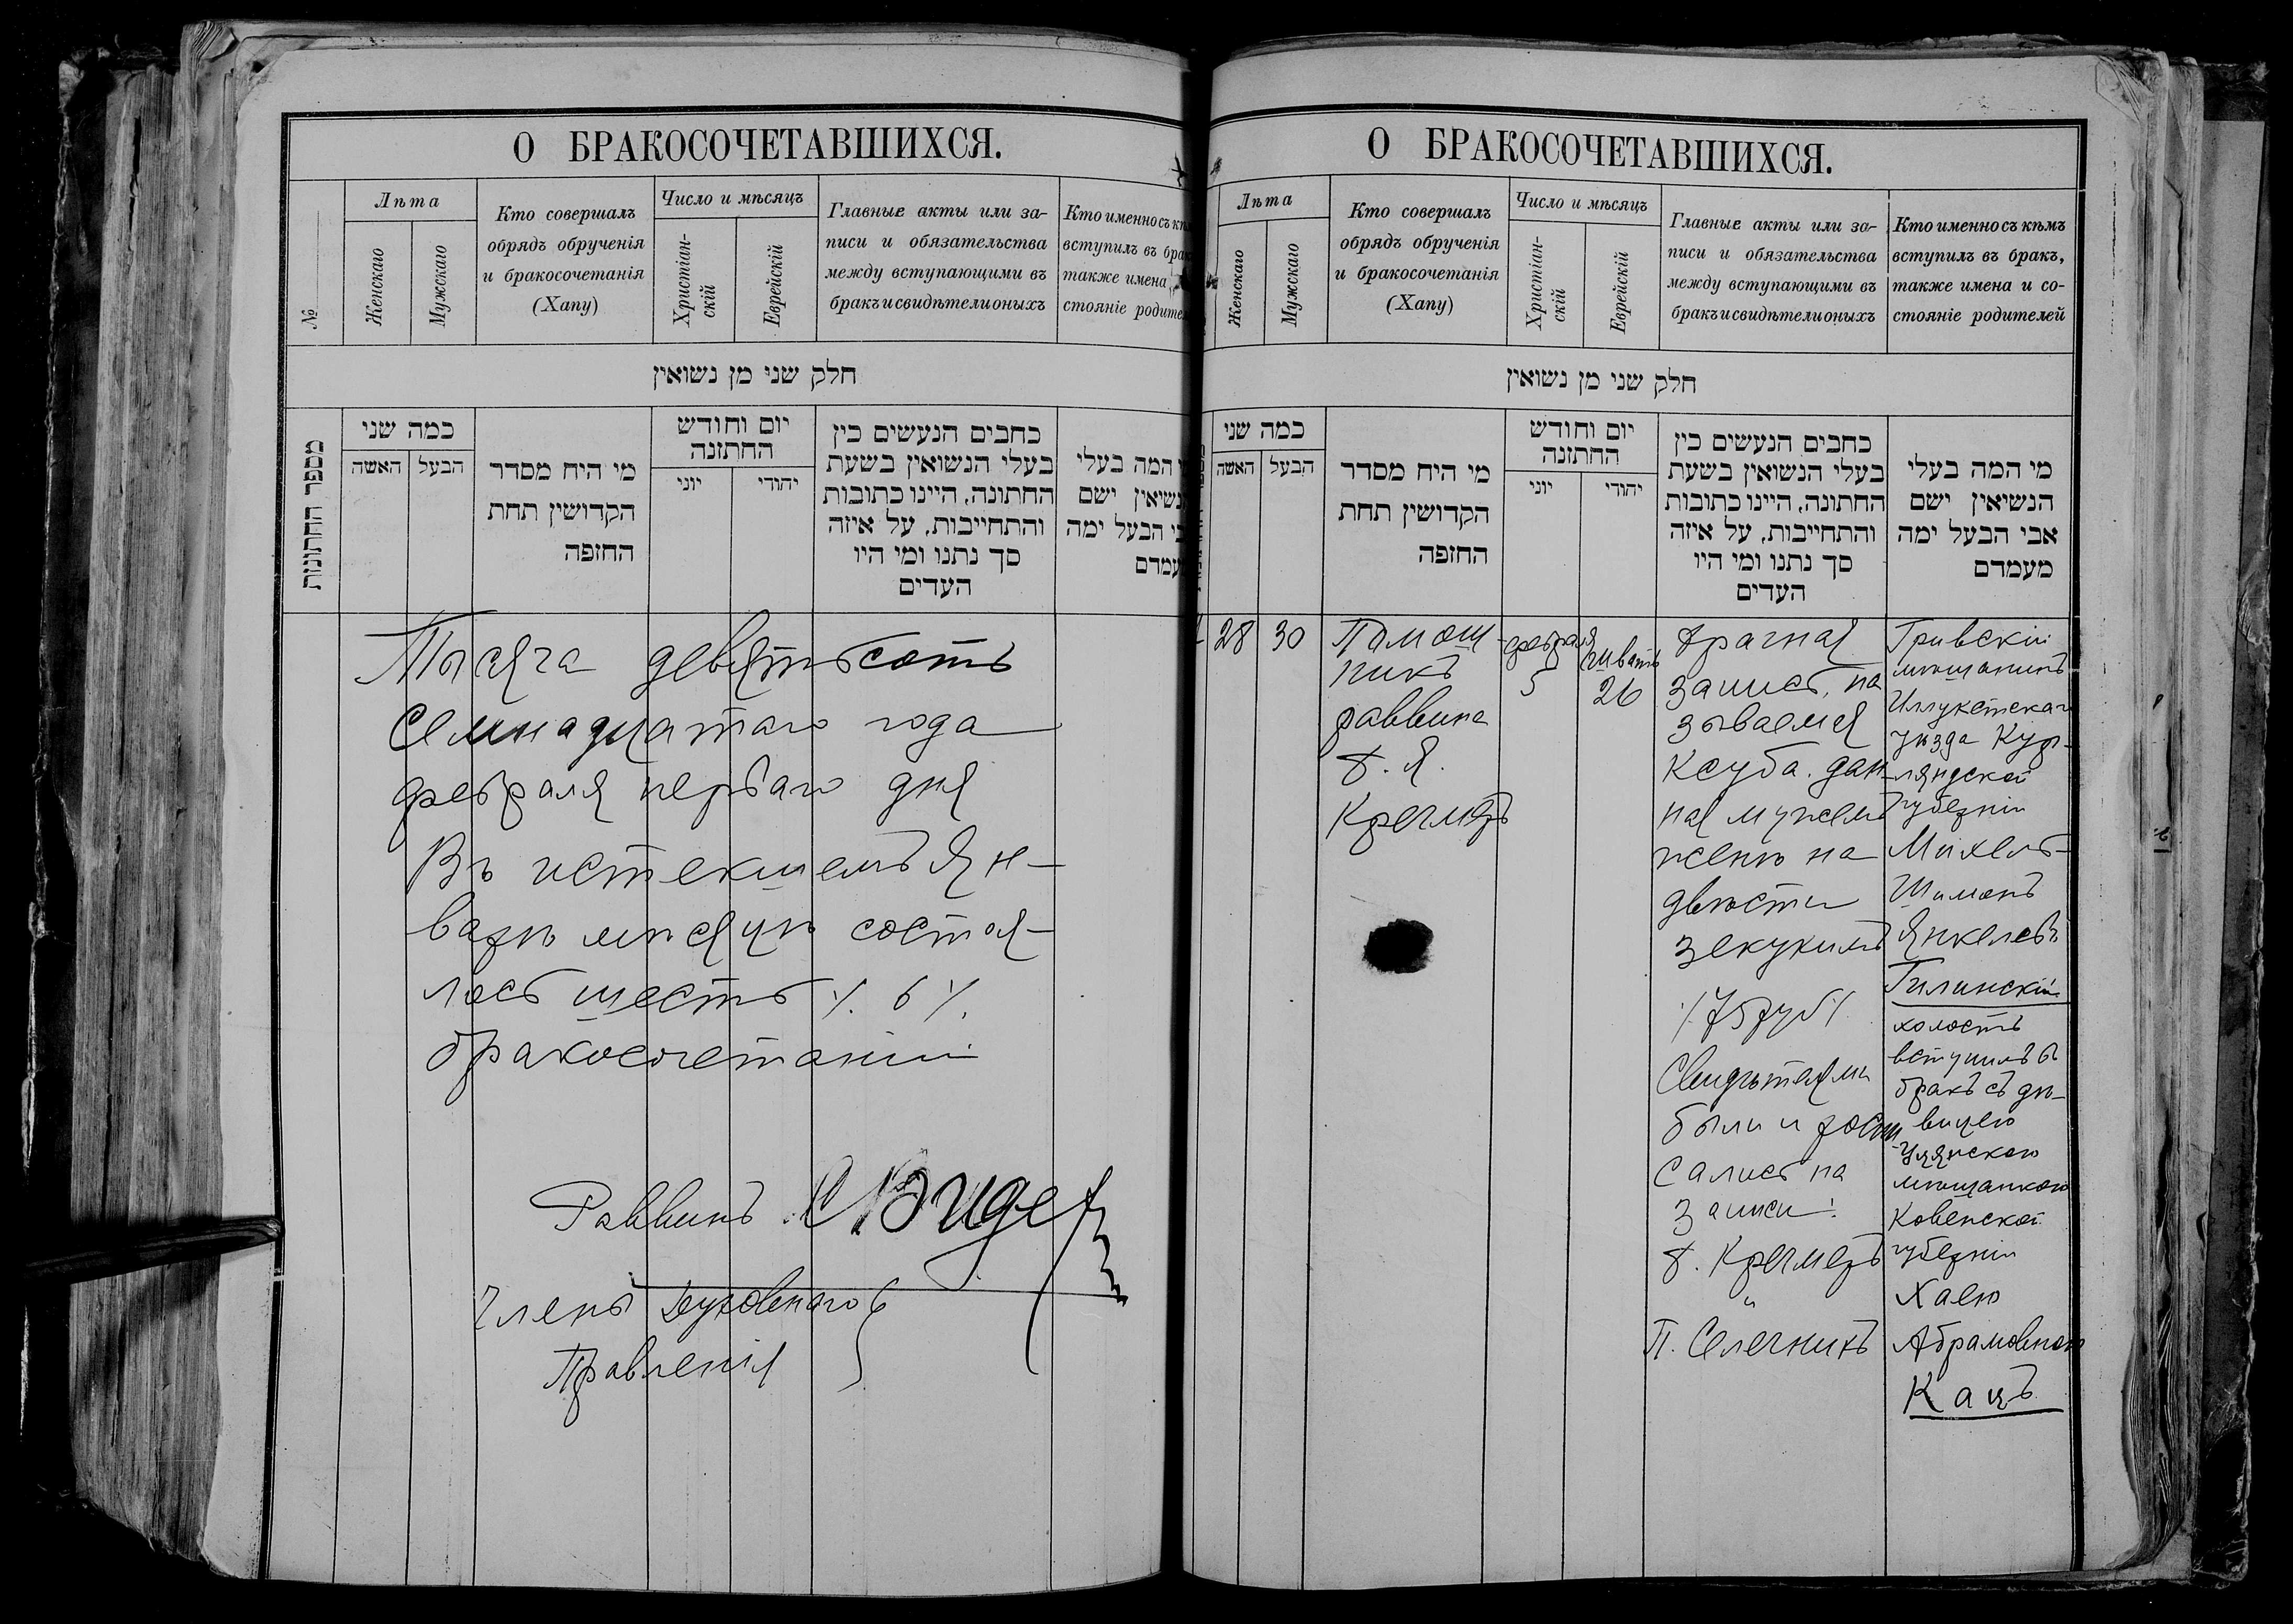 О БРАКОСОЧЕТАВШИХСЯ.
№
Лѣта
Женскаго
Мужскаго
Кто совершалъ
обрядъ обрученія
и бракосочетанія
(Хапу)
Число и мѣсяцъ
Христіан-
скій
Еврейскій
Главные акты или за-
писи и обязательства
между вступающими въ
бракъ и свидѣтели оныхъ
Кто именно съ
вступилъ въ
также имена
стояніе
חלק שני מן נשואין
מספר החתונות
כמה שני
האשה
הבעל
מי היח מסדר
הקדושין תחת
החזפה
יום וחודש
החתזנה
יוני
יהודי
כחבים הנעשים כין
בעלי הנשואין בשעת
החתונה, היינו כתובות
והתחייבות, על איזה
סך נתנו ומי היו
העדים
המה בעלי
ישם
הבעל ימה
Тысяча девятьсотъ
Семнадцатаго года
февраля перваго дня
Въ истекшемъ Ян-
варѣ мѣсяцѣ состоя-
лось шесть /. 6 /.
бракосочетаній
Раввинъ
Члены Духовнаго
Правленія
О БРАКОСОЧЕТАВШИХСЯ.
Лѣта
Женскаго
Мужскаго
Кто совершалъ
обрядъ обрученія
и бракосочетанія
(Хапу)
Число и мѣсяцъ
Христіан-
скій
Еврейскій
Главные акты или за-
писи и обязательства
между вступающими въ
бракъ и свидѣтели оныхъ
Кто именно съ кѣмъ
вступилъ въ бракъ,
также имена и со-
стояніе родителей
חלק שני מן נשואין
כמה שני
האשה
הבעל
מי היח מסדר
הקדושין תחת
החזפה
יום וחודש
החתזנה
יוני
יהודי
כחבים הנעשים כין
בעלי הנשואין בשעת
החתונה, היינו כתובות
והתחייבות, על איזה
סך נתנו ומי היו
העדים
מי המה בעלי
הנשיאין ישם
אבי הבעל ימה
מעמדם
28
30
Помощ-
никъ
раввина
Я.
Кремеръ
февраля
5
Шватъ
26
Брачная
запись, на
зываемая
Ксуба. дан-
ная мужемъ
женѣ на
двѣсти
зекукимъ
/75 руб/
Свидѣтелями
были и роспи-
сались на
записи:
Кремеръ
"
П. Селечникъ
Гривскій
мѣщанинъ
Иллукстскаго
уѣзда Кур-
ляндской
губерніи
Михель-
Шимонъ
Янкелевъ
Гилинскій
холостъ
вступилъ въ
бракъ съ дѣ-
вицею
мѣщанкою
Ковенской
губерніи
Хаею
Абрамовною
Кацъ